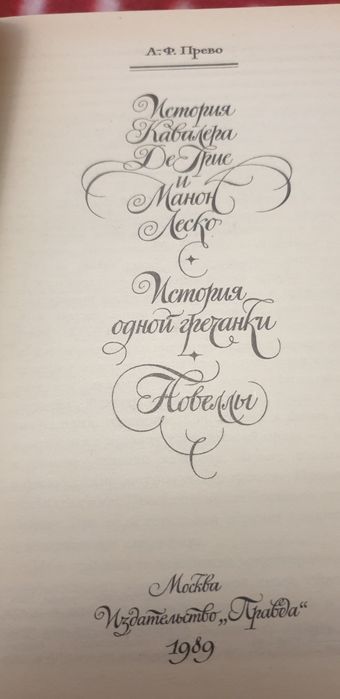 А.-Ф. Прево
История
Кавалера
Де Грие
и
Манон
Леско
История
одной гречанки
Новеллы
Москва
Издательство „Правда“
1989